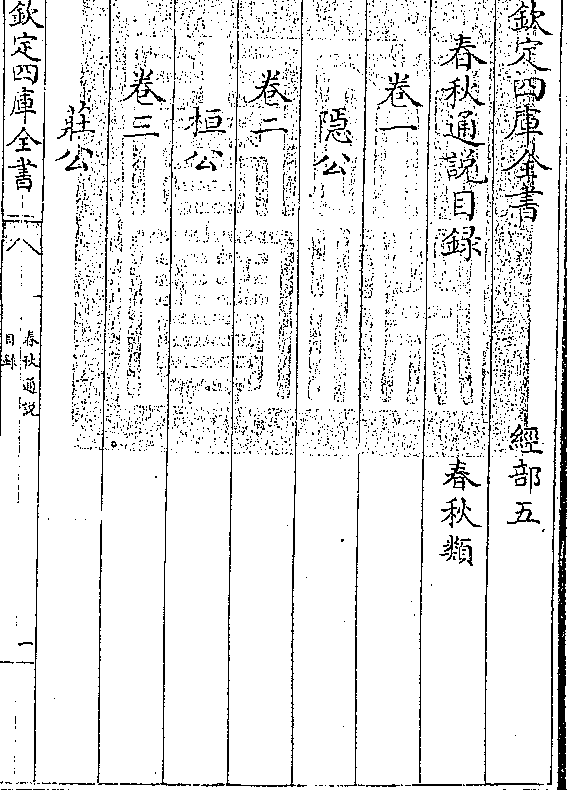 欽定四庫全書　經部五
春秋通說目錄　春秋類
卷一
隱公
卷二
桓公
卷三
莊公
欽定四庫全書
春秋通說
目錄
一